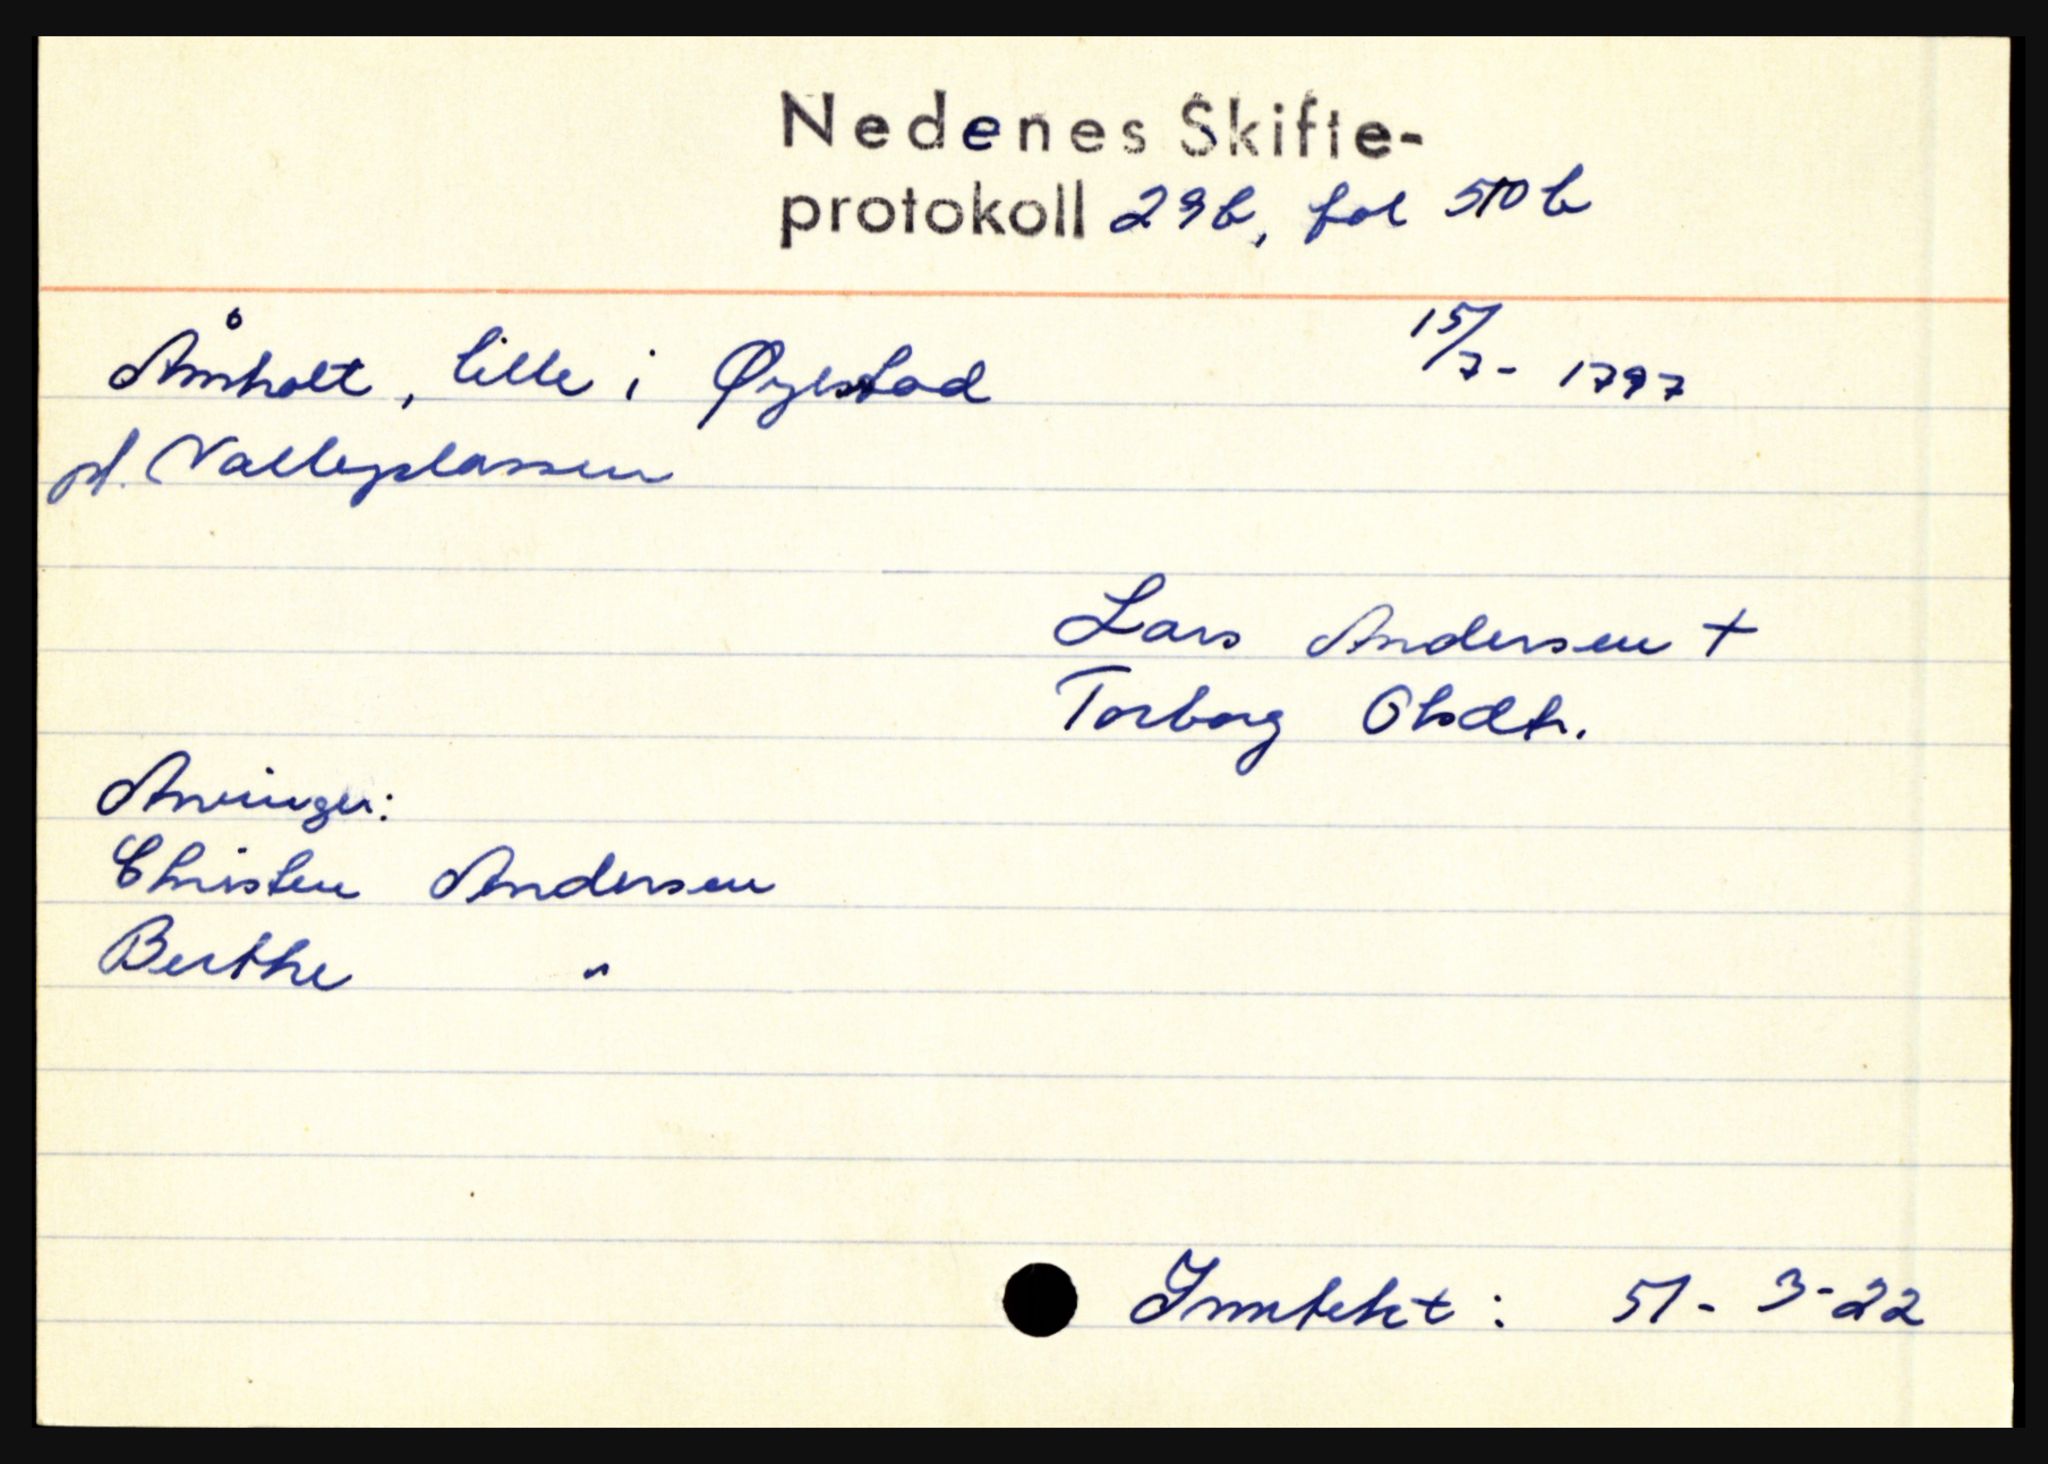 Nedenes Skifte-
protokoll 29b, fol 510b
Åmholt, lille i Øyestad 15/7-1797
pl. Valleplassen
Lars Andersen +
Torborg Olsdtr.
Arvinger:
Christen Andersen
Berthe "
Inntekt: 51-3-22